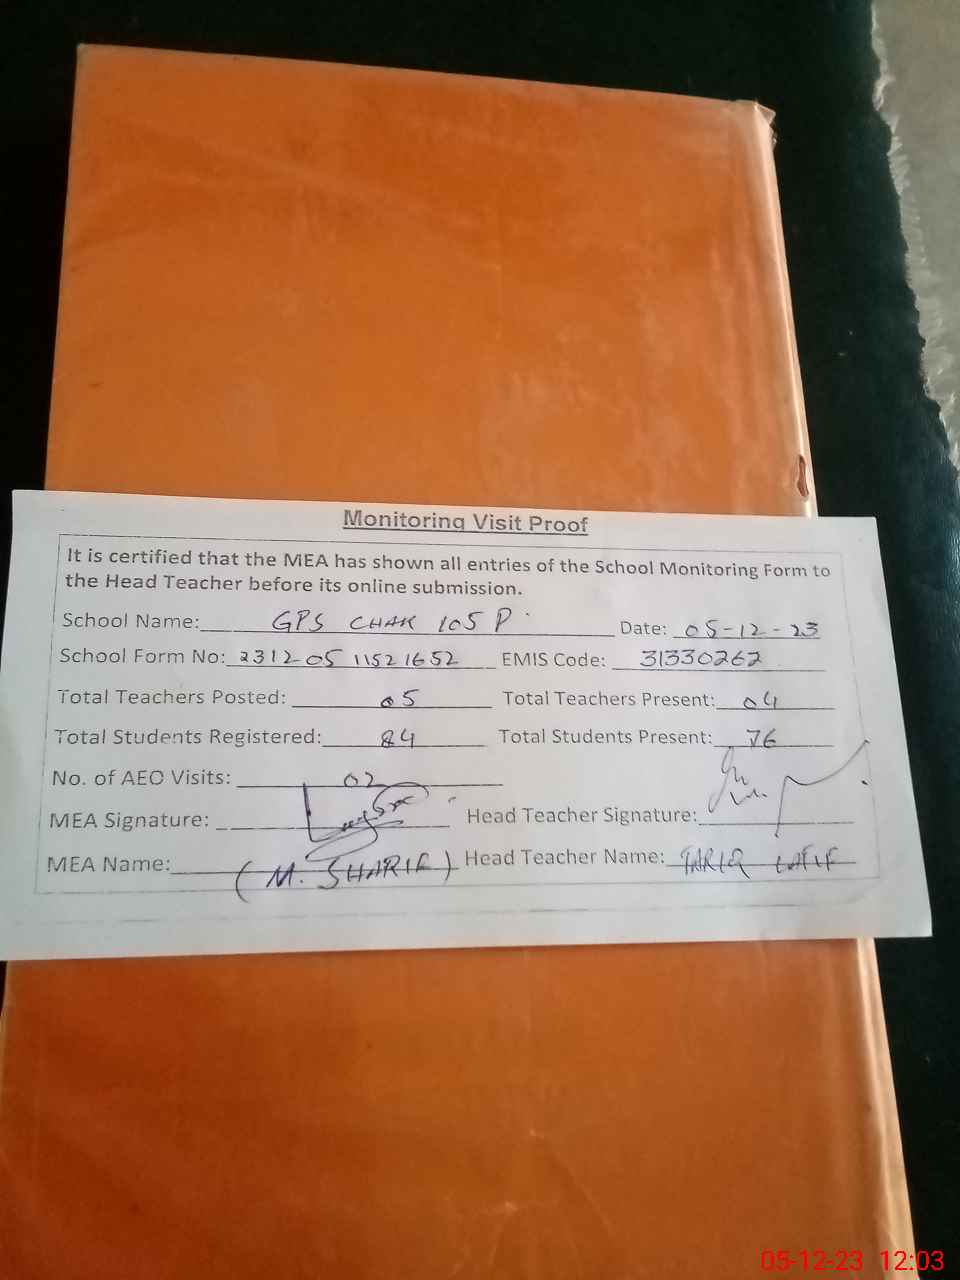 Monitoring Visit Proof
It is certified that the MEA has shown all entries of the School Monitoring Form to
the Head Teacher before its online submission.
School Name: GPS CHAK 105 P Date: 05-12-23
School Form No: 23120511521652 EMIS Code: 31330262
Total Teachers Posted: 05 Total Teachers Present: 04
Total Students Registered: 84 Total Students Present: 76
No. of AEO Visits: 02
MEA Signature: Head Teacher Signature:
MEA Name: (M. SHARIF) Head Teacher Name: TARIQ LATIF
05-12-23 12:03